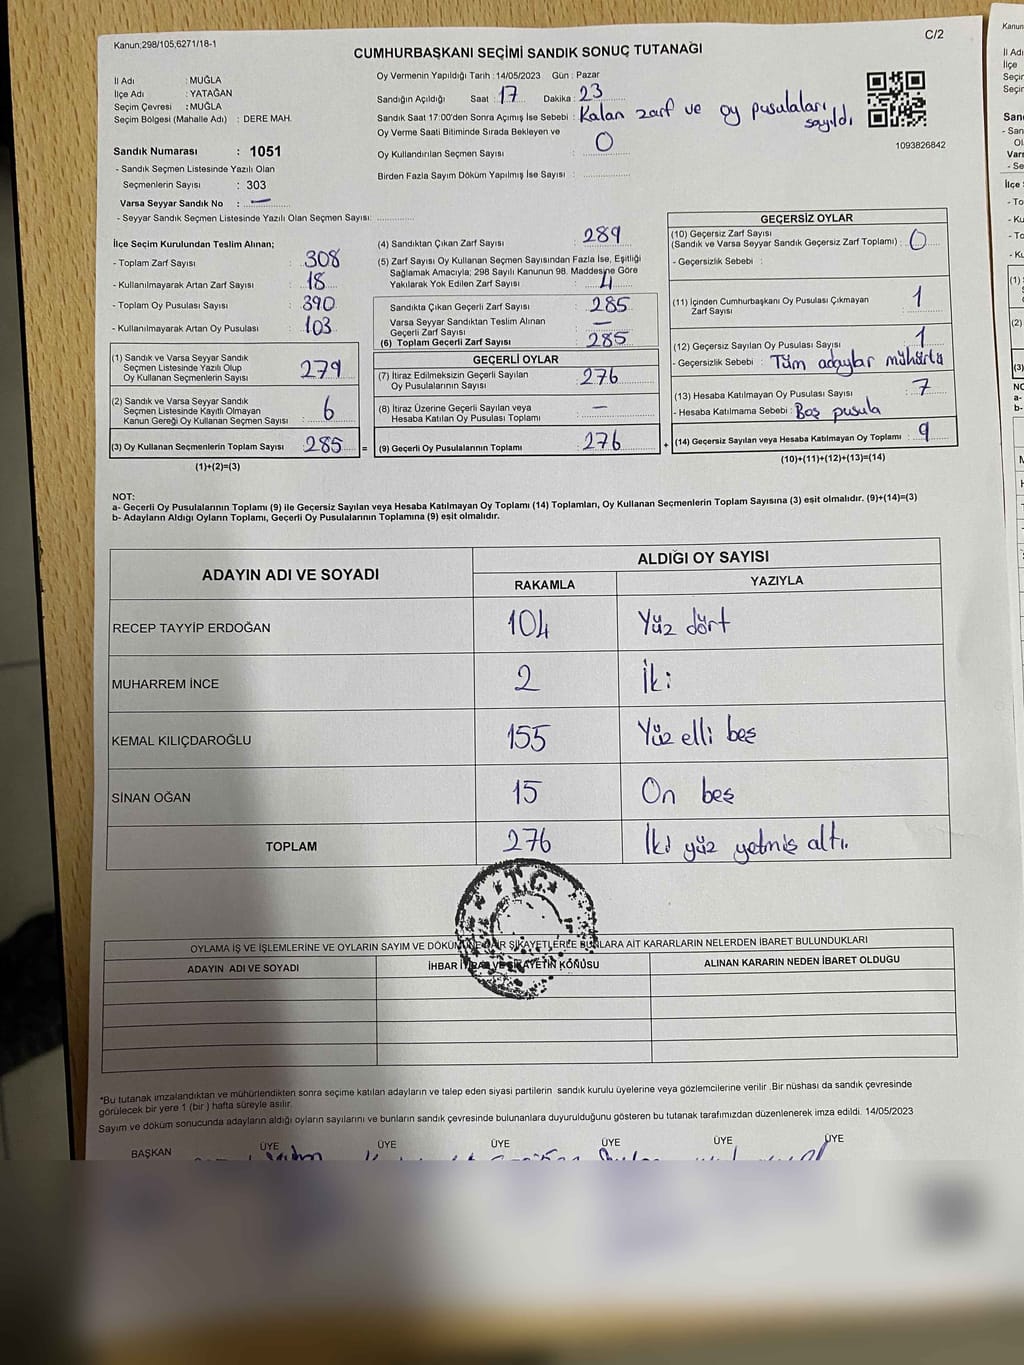 Kanun;298/105,6271/18-1
C/2
CUMHURBAŞKANI SEÇİMİ SANDIK SONUÇ TUTANAĞI
İl Adı : MUĞLA
İlçe Adı : YATAĞAN
Seçim Çevresi : MUĞLA
Seçim Bölgesi (Mahalle Adı) : DERE MAH.
Sandık Numarası : 1051
- Sandık Seçmen Listesinde Yazılı Olan
Seçmenlerin Sayısı : 303
Varsa Seyyar Sandık No : —
- Seyyar Sandık Seçmen Listesinde Yazılı Olan Seçmen Sayısı:
Oy Vermenin Yapıldığı Tarih : 14/05/2023 Gün : Pazar
Sandığın Açıldığı Saat : 17 Dakika : 23
Sandık Saat 17:00'den Sonra Açımış İse Sebebi : Kalan zarf ve oy pusulaları sayıldı
Oy Verme Saati Bitiminde Sırada Bekleyen ve
Oy Kullandırılan Seçmen Sayısı : 0
Birden Fazla Sayım Döküm Yapılmış İse Sayısı :
1093826842
İlçe Seçim Kurulundan Teslim Alınan;
- Toplam Zarf Sayısı : 308
- Kullanılmayarak Artan Zarf Sayısı : 18
- Toplam Oy Pusulası Sayısı : 390
- Kullanılmayarak Artan Oy Pusulası : 103
(1) Sandık ve Varsa Seyyar Sandık
Seçmen Listesinde Yazılı Olup
Oy Kullanan Seçmenlerin Sayısı : 279
(2) Sandık ve Varsa Seyyar Sandık
Seçmen Listesinde Kayıtlı Olmayan
Kanun Gereği Oy Kullanan Seçmen Sayısı : 6
(3) Oy Kullanan Seçmenlerin Toplam Sayısı : 285 =
(1)+(2)=(3)
(4) Sandıktan Çıkan Zarf Sayısı : 289
(5) Zarf Sayısı Oy Kullanan Seçmen Sayısından Fazla İse, Eşitliği
Sağlamak Amacıyla; 298 Sayılı Kanunun 98. Maddesine Göre
Yakılarak Yok Edilen Zarf Sayısı : 4
Sandıkta Çıkan Geçerli Zarf Sayısı : 285
Varsa Seyyar Sandıktan Teslim Alınan
Geçerli Zarf Sayısı : —
(6) Toplam Geçerli Zarf Sayısı : 285
GEÇERLİ OYLAR
(7) İtiraz Edilmeksizin Geçerli Sayılan
Oy Pusulalarının Sayısı : 276
(8) İtiraz Üzerine Geçerli Sayılan veya
Hesaba Katılan Oy Pusulası Toplamı : —
(9) Geçerli Oy Pusulalarının Toplamı : 276 +
GEÇERSİZ OYLAR
(10) Geçersiz Zarf Sayısı
(Sandık ve Varsa Seyyar Sandık Geçersiz Zarf Toplamı) : 0
- Geçersizlik Sebebi :
(11) İçinden Cumhurbaşkanı Oy Pusulası Çıkmayan
Zarf Sayısı : 1
(12) Geçersiz Sayılan Oy Pusulası Sayısı : 1
- Geçersizlik Sebebi : Tüm adaylar mühürlü
(13) Hesaba Katılmayan Oy Pusulası Sayısı : 7
- Hesaba Katılmama Sebebi : Boş pusula
(14) Geçersiz Sayılan veya Hesaba Katılmayan Oy Toplamı : 9
(10)+(11)+(12)+(13)=(14)
NOT:
a- Geçerli Oy Pusulalarının Toplamı (9) ile Geçersiz Sayılan veya Hesaba Katılmayan Oy Toplamı (14) Toplamları, Oy Kullanan Seçmenlerin Toplam Sayısına (3) eşit olmalıdır. (9)+(14)=(3)
b- Adayların Aldığı Oyların Toplamı, Geçerli Oy Pusulalarının Toplamına (9) eşit olmalıdır.
ADAYIN ADI VE SOYADI
ALDIĞI OY SAYISI
RAKAMLA YAZIYLA
RECEP TAYYİP ERDOĞAN 104 Yüz dört
MUHARREM İNCE 2 İki
KEMAL KILIÇDAROĞLU 155 Yüz elli beş
SİNAN OĞAN 15 On beş
TOPLAM 276 İki yüz yetmiş altı.
T.C.
OYLAMA İŞ VE İŞLEMLERİNE VE OYLARIN SAYIM VE DÖKÜMÜNE DAİR ŞİKAYETLERLE BUNLARA AİT KARARLARIN NELERDEN İBARET BULUNDUKLARI
ADAYIN ADI VE SOYADI
İHBAR İTİRAZ VE ŞİKAYETİN KONUSU
ALINAN KARARIN NEDEN İBARET OLDUĞU
*Bu tutanak imzalandıktan ve mühürlendikten sonra seçime katılan adayların ve talep eden siyasi partilerin sandık kurulu üyelerine veya gözlemcilerine verilir .Bir nüshası da sandık çevresinde
görülecek bir yere 1 (bir ) hafta süreyle asılır.
Sayım ve döküm sonucunda adayların aldığı oyların sayılarını ve bunların sandık çevresinde bulunanlara duyurulduğunu gösteren bu tutanak tarafımızdan düzenlenerek imza edildi. 14/05/2023
BAŞKAN ÜYE ÜYE ÜYE ÜYE ÜYE ÜYE